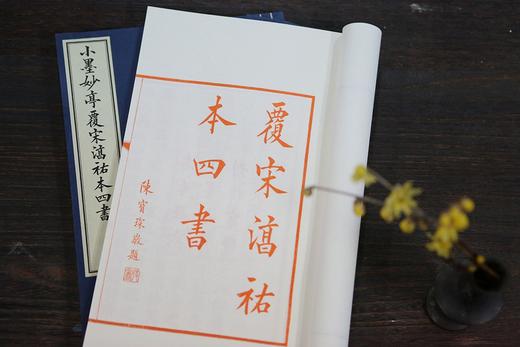 小墨妙亭覆宋湻祐本四書
覆宋湻祐
本四書
陳寶琛敬題